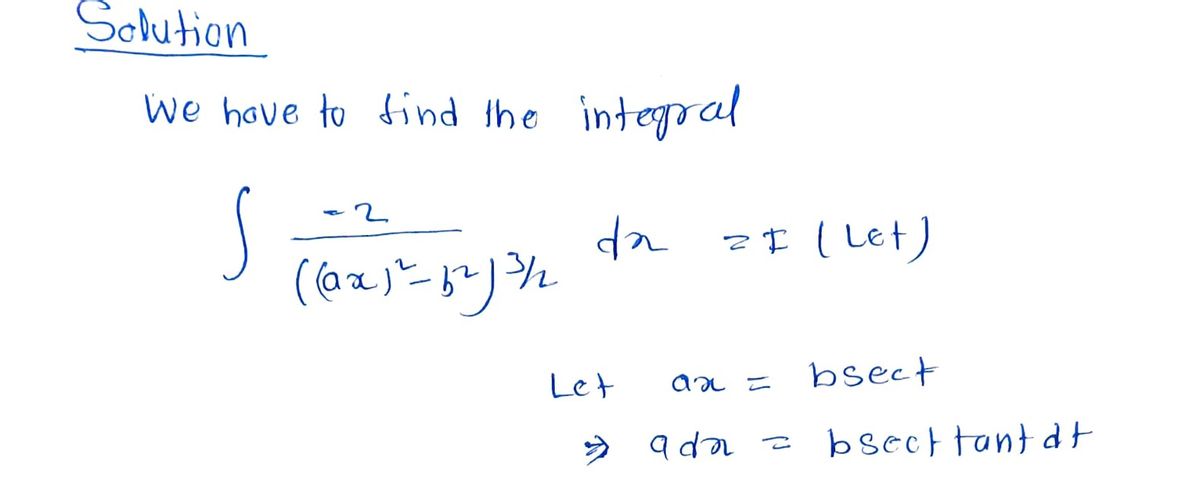 Solution
We have to find the integral
∫ -2 / ((ax)² - b²)^3/2 dx = I (Let)
Let ax = bsect
⇒ adx = bsect tant dt